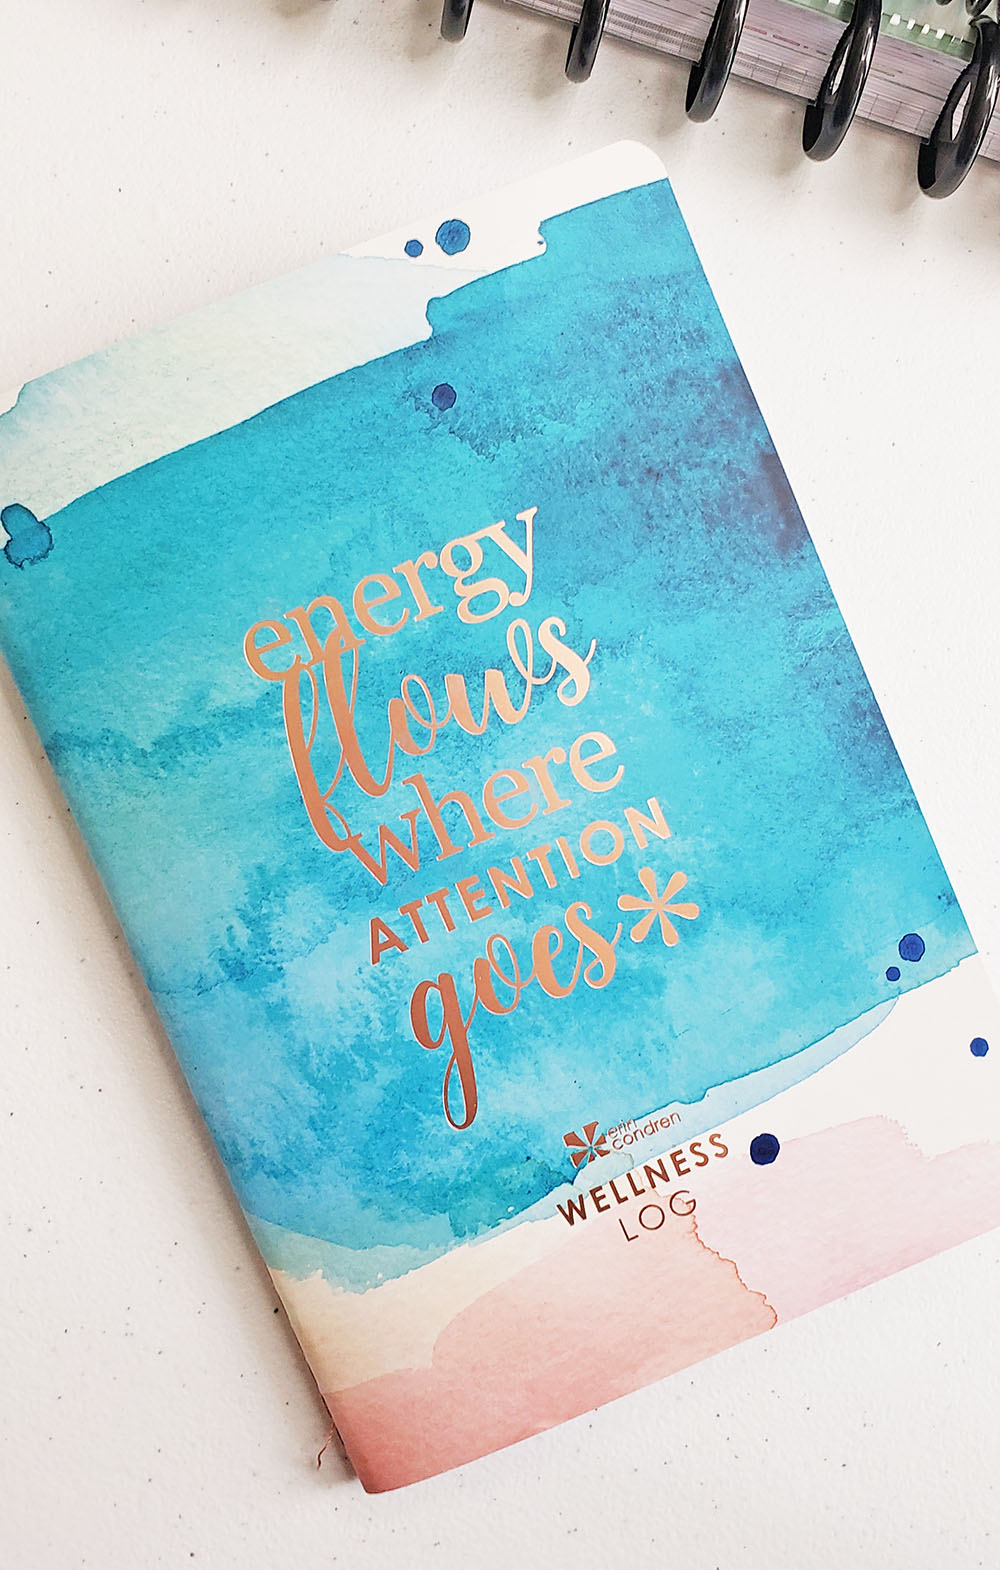 energy
flows
where
ATTENTION
goes*
erin
condren
WELLNESS
LOG